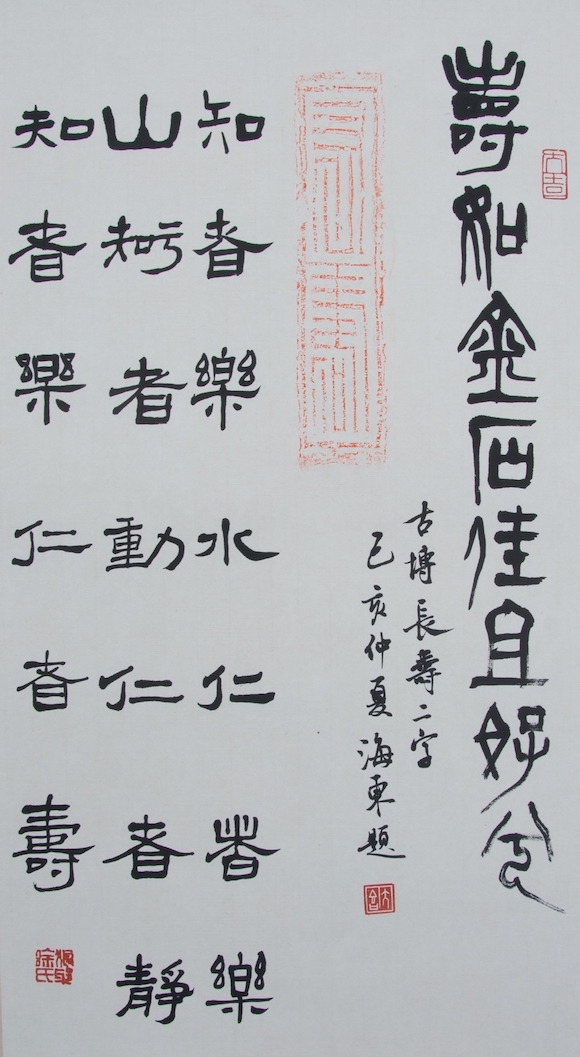 壽如金石佳且好兮
大吉
長壽
古塼長壽二字
己亥仲夏海東題
知者樂水仁者樂
山知者動仁者靜
知者樂仁者壽